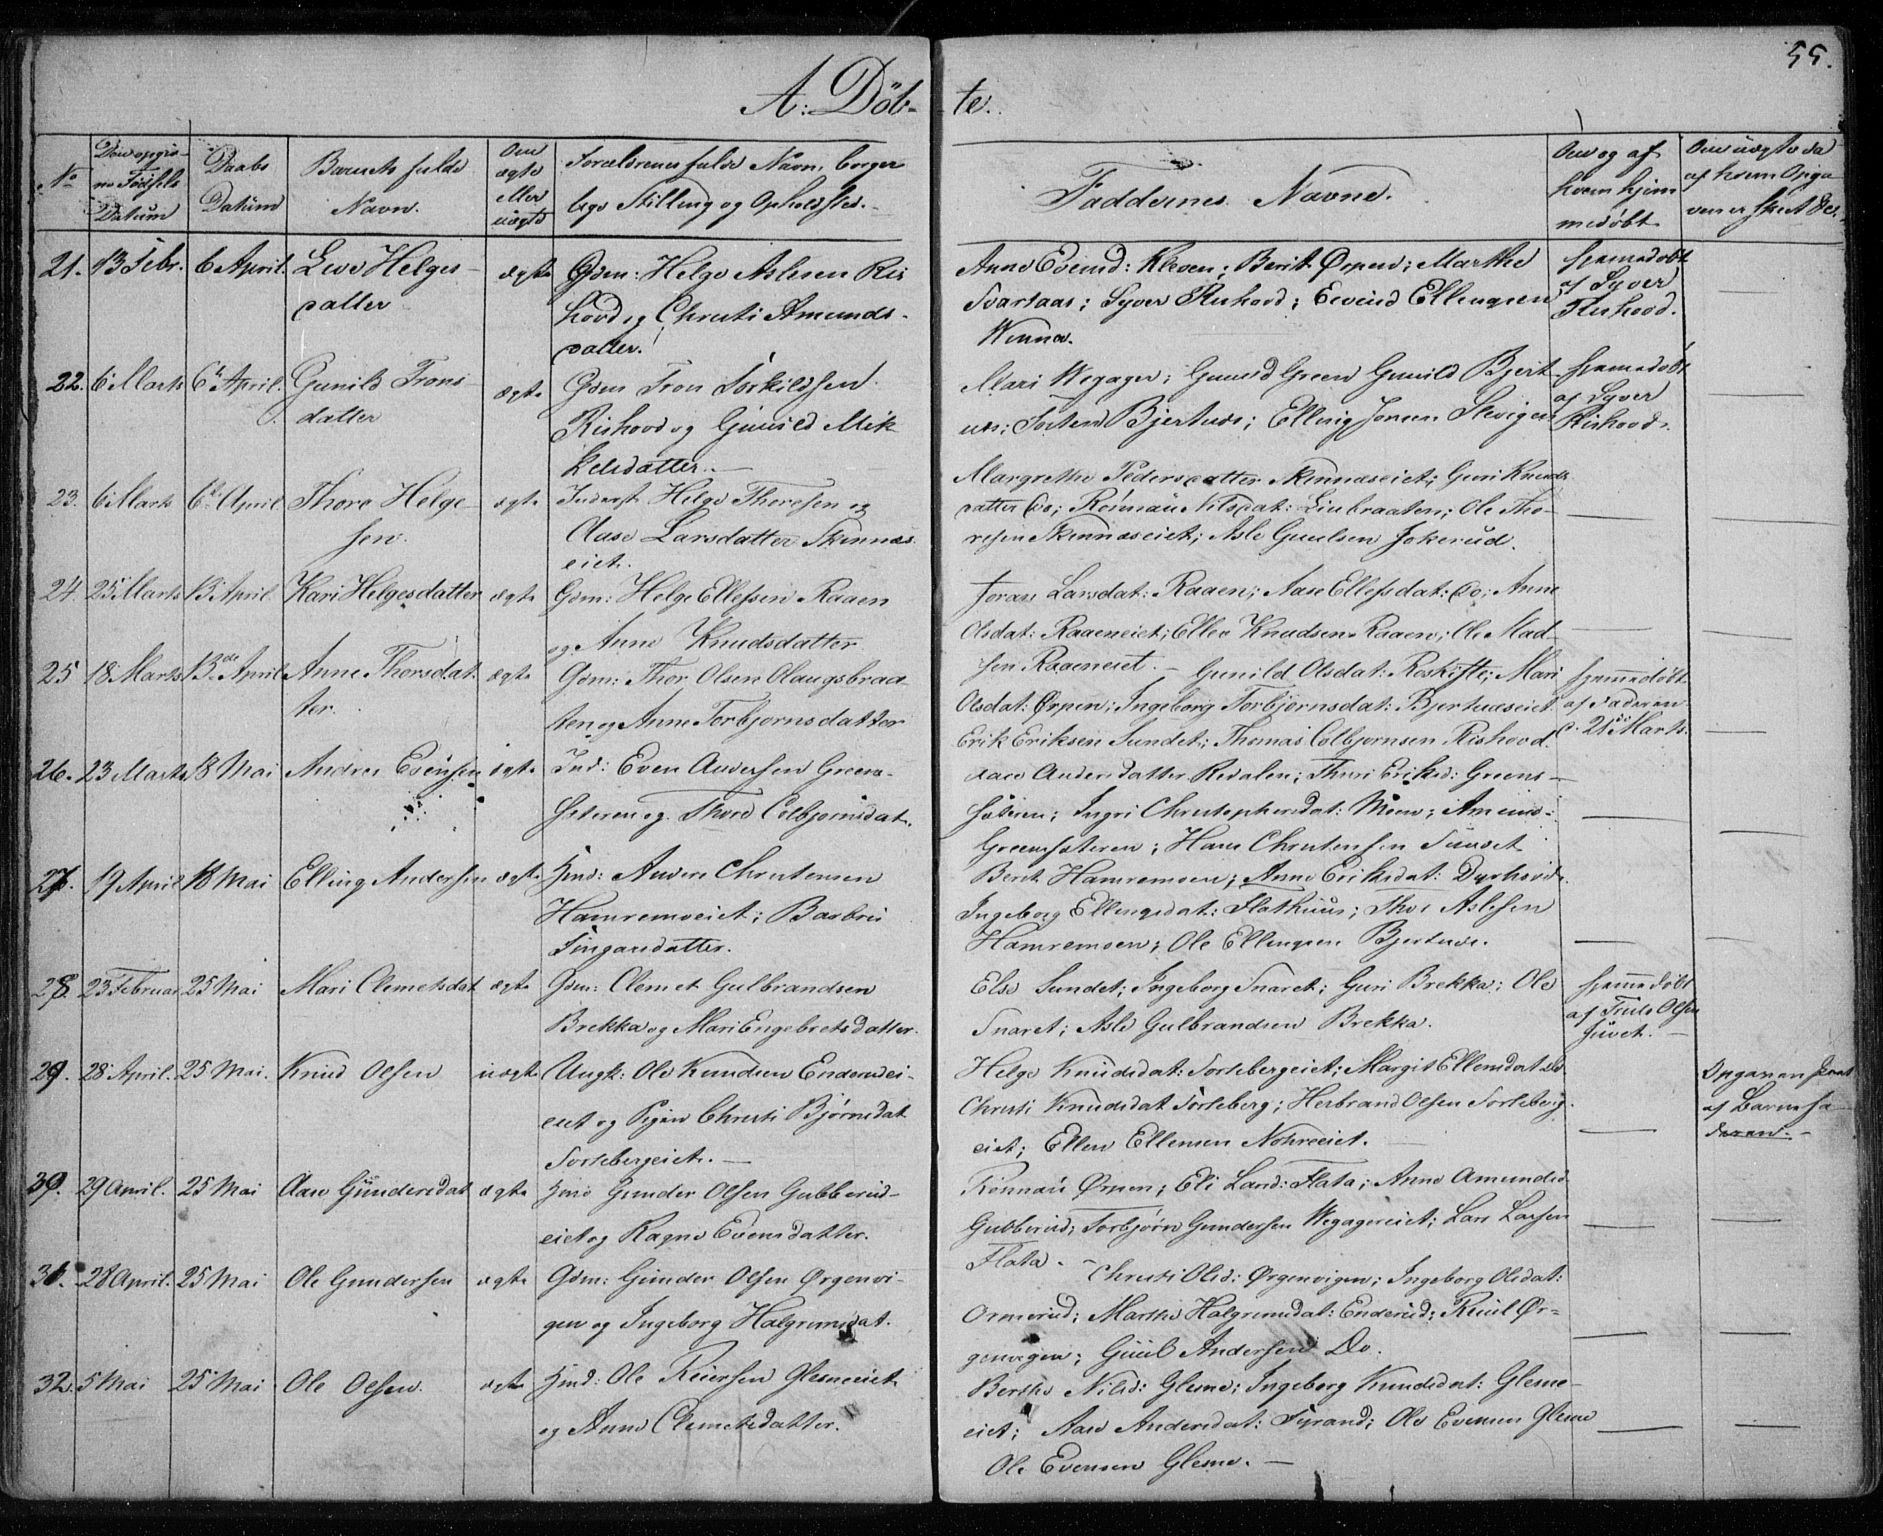 55.
A: Döb- te.
No
Den opgiv-
ne Födsels
Datum
Daabs
Datum
Barnets fulde
Navn.
Om
ægte
eller
uægte
Forældrenes fulde Navn, borger
lige Stilling og Opholdsted.
Faddernes Navne.
Om og af
hvem hjem
medöbt
Om uægte da
af hvem Opga
ven er skeet &c.
21. 13 Febr. 6 April. Live Helges- ægte Gdm: Helge Aslesen Ris
datter
hovd og Christi Amunds-
datter.
Anne Evensd: Kleven; Berit Ørpen; Marthe
Svartaas; Syver Rishovd; Eivind Ellingsen
hjemedöbt
af Syver
Rishovd.
22. 6 Marts 6te April. Gunild Trons ægte Gdm Tron Torkildsen
datter
Rishovd og Gunild Mik
kelsdatter.
Mari Wegager; Gunild Green Gunild Bjert
uds; Torsten Bjertuds; Elling Jonsen
hjemedöbt
af Syver
Rishovd.
23. 6 Marts 6te April Thore Helge- ægte Inderst Helge Thoresen og
sen.
Aase Larsdatter Skinnæs
eiet.
Margrethe Pedersdatter Skinnæseiet; Guri Knuds
datter Do; Rönnau Nilsdat: Liebraaten; Ole Tho-
resen Skinnæseiet; Asle Guulsen Jokerud.
24. 25 Marts 13 April Kari Helgesdatter ægte Gdm: Helge Ellefsen Raaen
og Anne Knudsdatter
Joran Larsdat: Raaen; Aase Ellefsdat: Do; Anne
Olsdat: Raaeneiet; Ellev Knudsen Raaen; Ole Mad-
sen Raaeneiet.
25 18 Marts 13de April Anne Thorsdat ægte Gdm: Thor Olsen Olaugsbraa
ter.
ten og Anne Torbjornsdatter
Gunild Olsdat: Roskifte; Mari
Olsdat: Ørpen; Ingeborg Torbjornsdat: Bjertuseiet
Erik Eriksen Sundet; Thomas Colbjornsen Rishovd.
hjemmedöbt
af Faderen
d. 21de Marts.
26. 23 Marts 18 Mai Andres Evensen ægte Ind: Even Andersen Greens-
fsteren og Thore Colbjornsdat.
Aase Andersdatter Redalen; Thuri Eriksd: Greens-
fsteren; Ingri Christophersdat: Moen; Amund
Greensfsteren; Hans Christensen Sundet
27. 19 April 18 Mai Elling Andersen ægte Hmd: Anders Christensen
Hamremoeiet; Barbrii
Tingarsdatter.
Berit Hamremoen; Anne Eriksdat: Dyrhovd
Ingeborg Ellingsdat: Flathuus; Thor Aslesen
Hamremoen; Ole Ellingsen Bjertuds.
28. 23 Februar 25 Mai Mari Clemetsdat ægte Gdm: Clemet Gulbrandsen
Brekka og Mari Engebretsdatter.
Else Sundet; Ingeborg Snaret; Guri Brekka; Ole
Snaret; Asle Gulbrandsen Brekka.
hjemmedöbt
af Truls Olsen
Juvet.
29. 28 April. 25 Mai. Knud Olsen uægte Ungk: Ole Knudsen Enderudei-
eiet og Pigen Christi Bjørnsdat
Sorsebergeiet.
Helge Knudsdat: Sorsebergeiet; Margit Ellensdat Do
Christi Knudsdat Sorseberg; Herbrand Olsen Sorseberg
eiet; Ellen Ellensen Nohreeiet.
Opgaven skeet
af Barnefa-
deren.
30. 29 April. 25 Mai Aase Gundersdat ægte Hmd Gunder Olsen Gubberud-
eiet og Ragne Evensdatter.
Rönnau Ørpen; Eli Land: Flata; Anne Amundsd
Gubberud; Torbjörn Gundersen Wegagereiet; Lars Larsen
Flata.
31. 28 April. 25 Mai Ole Gundersen ægte Gdm: Gunder Olsen Ørgenvi-
gen og Ingeborg Halgrimsdat.
Christi Olsd: Ørgenvigen; Ingeborg Olsdat:
Ormerud; Marthe Halgrimsdat: Enderud; Knul Ør-
genvigen; Guul Andersen Do.
32. 5 Mai 25 Mai Ole Olsen. ægte Hmd: Ole Reiersen Glesneeiet
og Anne Clemetsdatter.
Berthe Nilsd: Glesne; Ingeborg Knudsdat: Glesne-
eiet; Aase Andersdat: Fyrand; Ole Evensen Glesne
Ole Evensen Glesne.